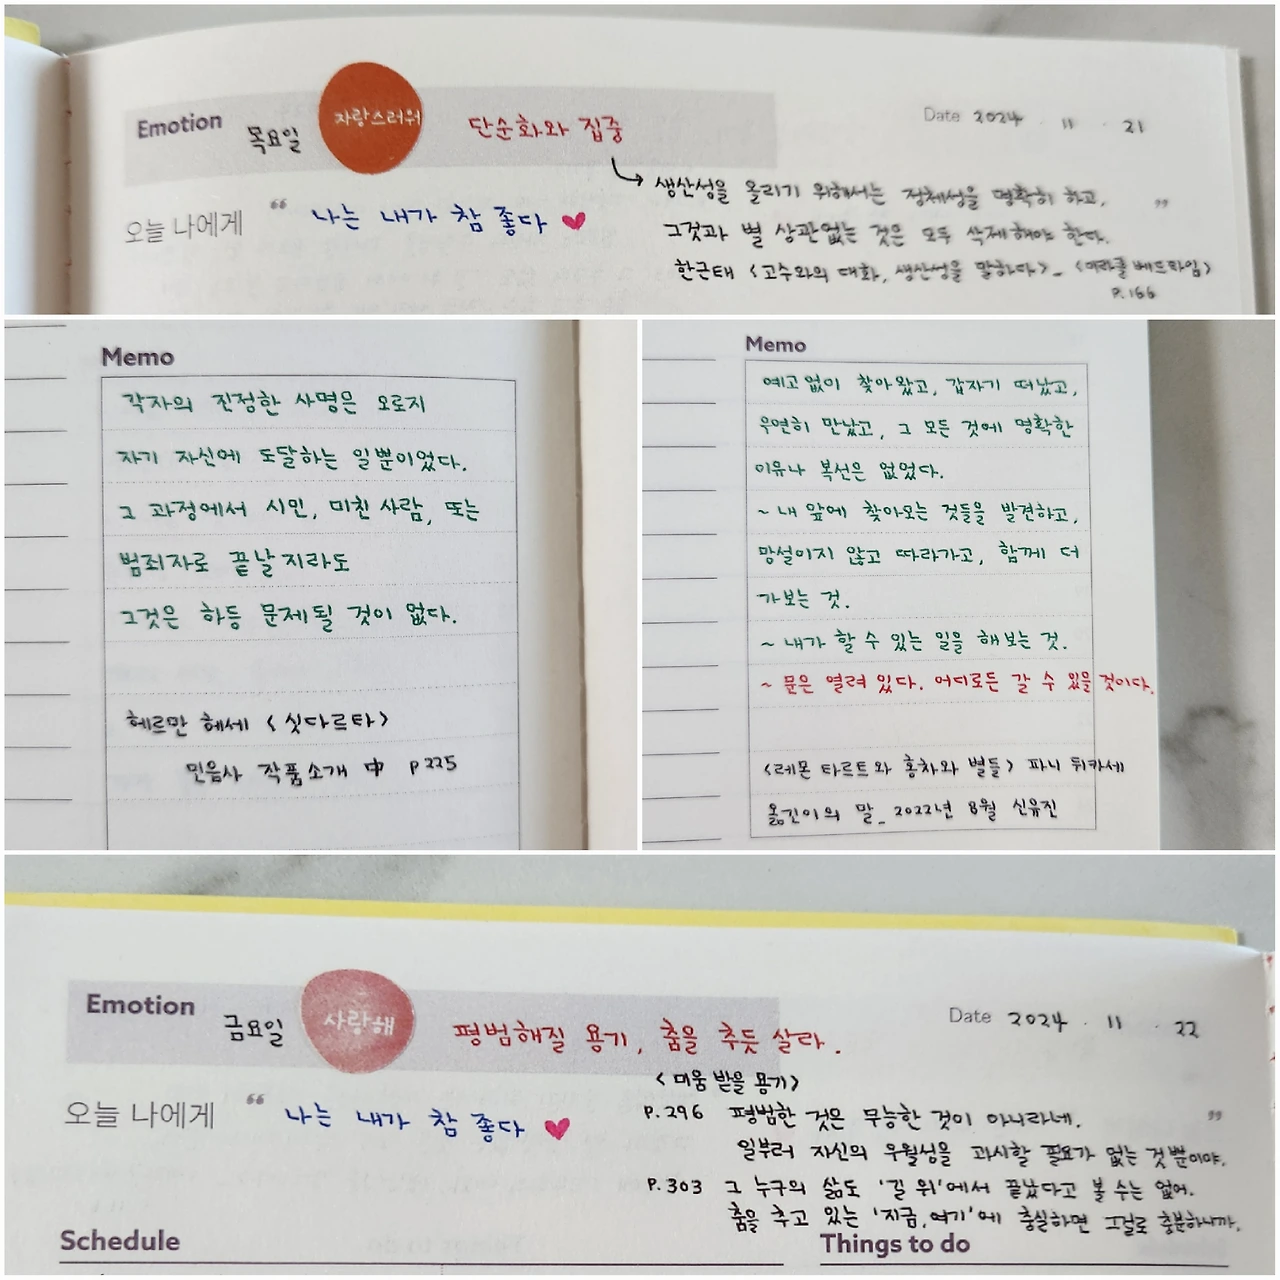 Emotion 목요일 자랑스러워 단순화와 집중 Date 2024 . 11 . 21
생산성을 올리기 위해서는 정체성을 명확히 하고,
오늘 나에게 “ 나는 내가 참 좋다 ♥ ”
그것과 별 상관없는 것은 모두 삭제해야 한다.
한근태 <고수와의 대화, 생산성을 말하다>_ <미라클 베드타임>
P.166
Memo
각자의 진정한 사명은 오로지
자기 자신에 도달하는 일뿐이었다.
그 과정에서 시인, 미친 사람, 또는
범죄자로 끝날지라도
그것은 하등 문제될 것이 없다.
헤르만 헤세 <싯다르타>
민음사 작품소개 中 P225
Memo
예고없이 찾아왔고, 갑자기 떠났고,
우연히 만났고, 그 모든 것에 명확한
이유나 복선은 없었다.
~ 내 앞에 찾아오는 것들을 발견하고,
망설이지 않고 따라가고, 함께 더
가보는 것.
~ 내가 할 수 있는 일을 해보는 것.
~ 문은 열려 있다. 어디로든 갈 수 있을 것이다.
<레몬 타르트와 홍차와 별들> 파니 뒤카세
옮긴이의 말_ 2022년 8월 신유진
Emotion 금요일 사랑해 평범해질 용기, 춤을 추듯 살라. Date 2024 . 11 . 22
<미움 받을 용기>
오늘 나에게 “ 나는 내가 참 좋다 ♥ ”
P.296 평범한 것은 무능한 것이 아니라네.
일부러 자신의 우월성을 과시할 필요가 없는 것뿐이야.
P.303 그 누구의 삶도 '길 위'에서 끝났다고 볼 수는 없어.
춤을 추고 있는 '지금, 여기'에 충실하면 그걸로 충분하니까.
Schedule
Things to do